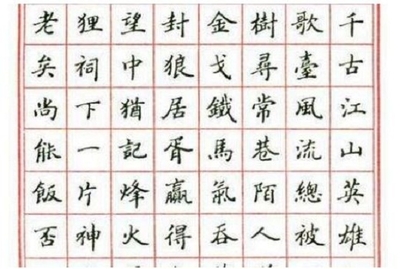 千古江山英雄
歌臺風流總被
樹尋常巷陌人
金戈鐵馬氣吞
封狼居胥贏得
望中猶記烽火
狸祠下一片神
老矣尚能飯否